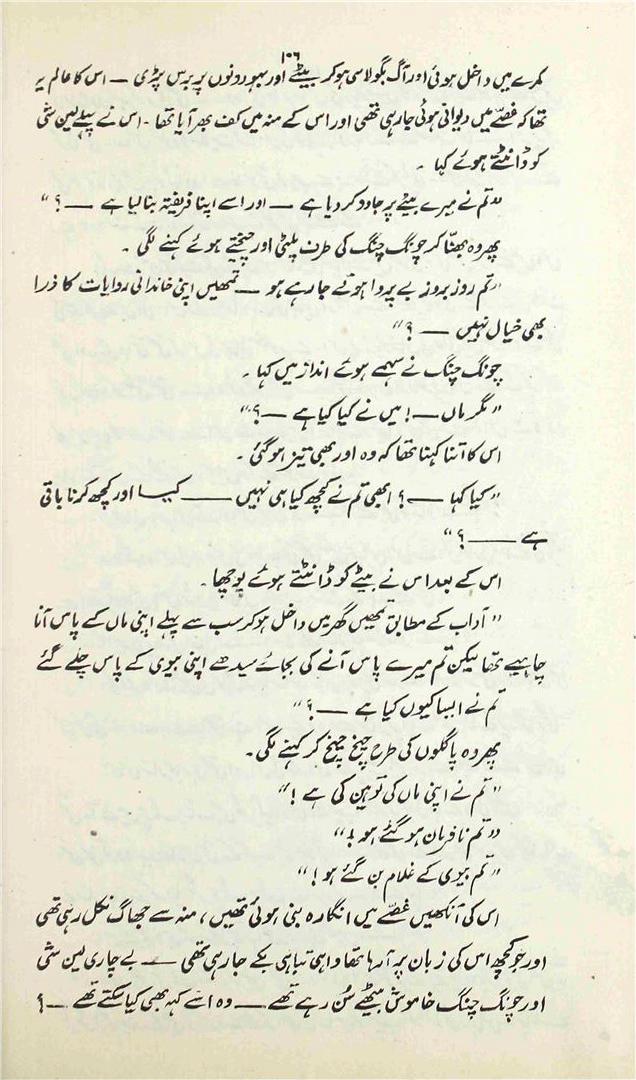 ۱۰۶
کمرے میں داخل ہوئی اور آگ بگولا سی ہو کر بیٹے اور بہو دونوں پر برس پڑی — اس کا عالم یہ
تھا کہ غصّے میں دیوانی ہوئی جا رہی تھی اور اس کے منہ میں کف بھر آیا تھا ۔ اس نے پہلے لین سٹی
کو ڈانٹتے ہوئے کہا ۔
”تم نے میرے بیٹے پر جادو کر دیا ہے — اور اسے اپنا فریفتہ بنا لیا ہے — ؟“
پھر وہ بھنّا کر چونگ چنگ کی طرف پلٹی اور چیختے ہوئے کہنے لگی ۔
”تم روز بروز بے پروا ہوتے جا رہے ہو — تمھیں اپنی خاندانی روایات کا ذرا
بھی خیال نہیں — ؟“
چونگ چنگ نے سہمے ہوئے انداز میں کہا ۔
”مگر ماں — ! میں نے کیا کیا ہے — ؟“
اس کا اتنا کہنا تھا کہ وہ اور بھی تیز ہو گئی ۔
”کیا کہا — ؟ ابھی تم نے کچھ کیا ہی نہیں —— کیسا اور کچھ کرنا باقی
ہے —— ؟“
اس کے بعد اس نے بیٹے کو ڈانٹتے ہوئے پوچھا ۔
”آداب کے مطابق تمھیں گھر میں داخل ہو کر سب سے پہلے اپنی ماں کے پاس آنا
چاہیے تھا لیکن تم میرے پاس آنے کی بجائے سیدھے اپنی بیوی کے پاس چلے گئے
تم نے ایسا کیوں کیا ہے — ؟“
پھر وہ پاگلوں کی طرح چیخ چیخ کر کہنے لگی ۔
”تم نے اپنی ماں کی توہین کی ہے !“
”تم نافرمان ہو گئے ہو !“
”تم بیوی کے غلام بن گئے ہو !“
اس کی آنکھیں غصّے میں انگارہ بنی ہوئی تھیں ، منہ سے جھاگ نکل رہی تھی
اور جو کچھ اس کی زبان پر آ رہا تھا واہی تباہی بکے جا رہی تھی — بے چاری لین سٹی
اور چونگ چنگ خاموش بیٹھے سُن رہے تھے — وہ اسے کہہ بھی کیا سکتے تھے — ؟